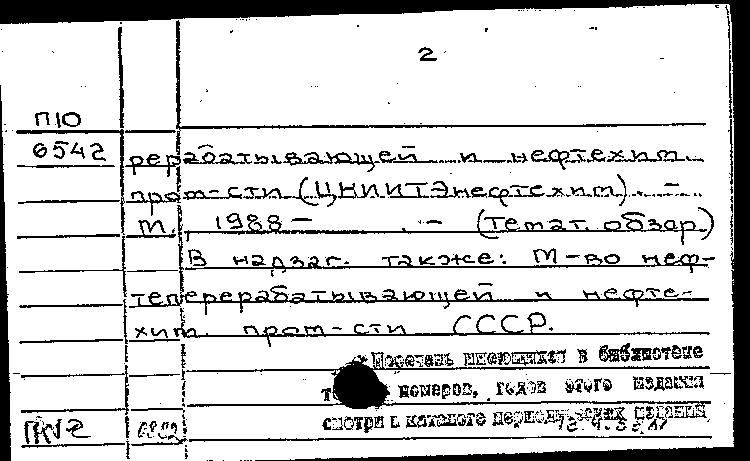 2
П10
6542 рерабатывающей и нефтехим.
пром-сти (ЦНИИТЭнефтехим). –
М., 1988 – . – (Темат. обзор)
В надзаг. также: М-во неф-
теперерабатывающей и нефте-
хим. пром-сти СССР.
Перечень имеющихся в библиотеке
номеров, годов этого издания
смотри в каталоге периодических изданий